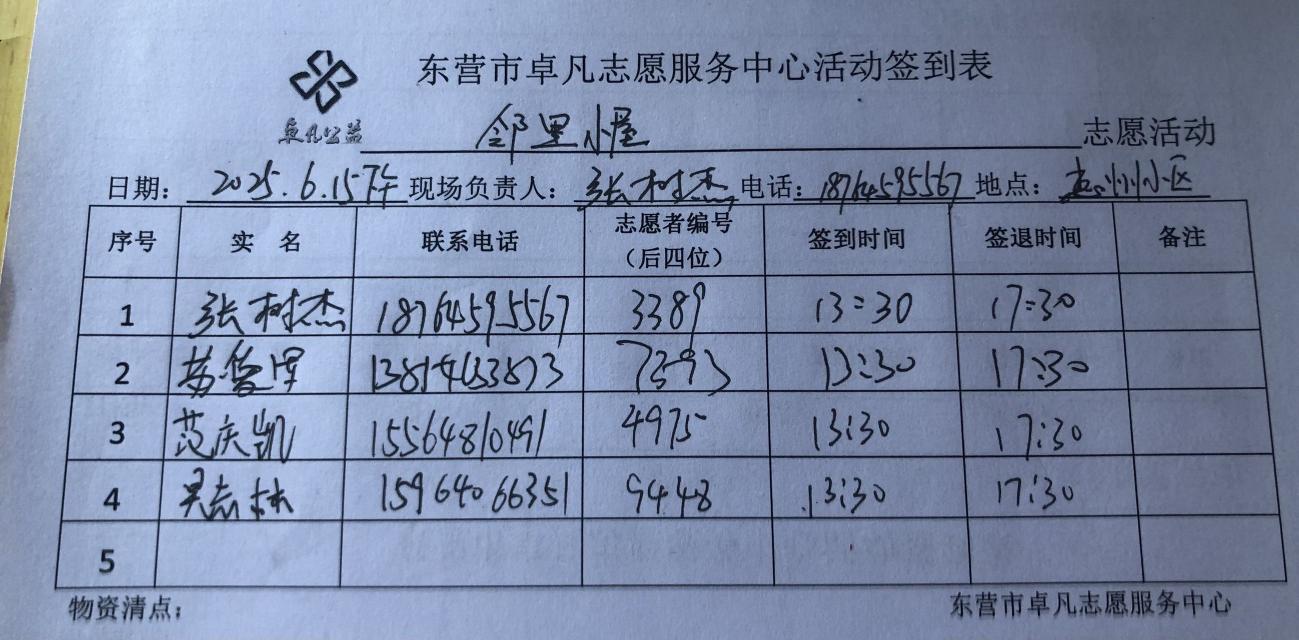 东营市卓凡志愿服务中心活动签到表
卓凡公益 邻里小屋 志愿活动
日期: 2025.6.15下午 现场负责人: 张树杰 电话: 18764595567 地点: 州小区
序号 实 名 联系电话 志愿者编号(后四位) 签到时间 签退时间 备注
1 张树杰 18764595567 3389 13:30 17:30
2 7393 13:30 17:30
3 范庆凯 15564810491 4975 13:30 17:30
4 吴志林 15964066351 9448 13:30 17:30
5
物资清点: 东营市卓凡志愿服务中心